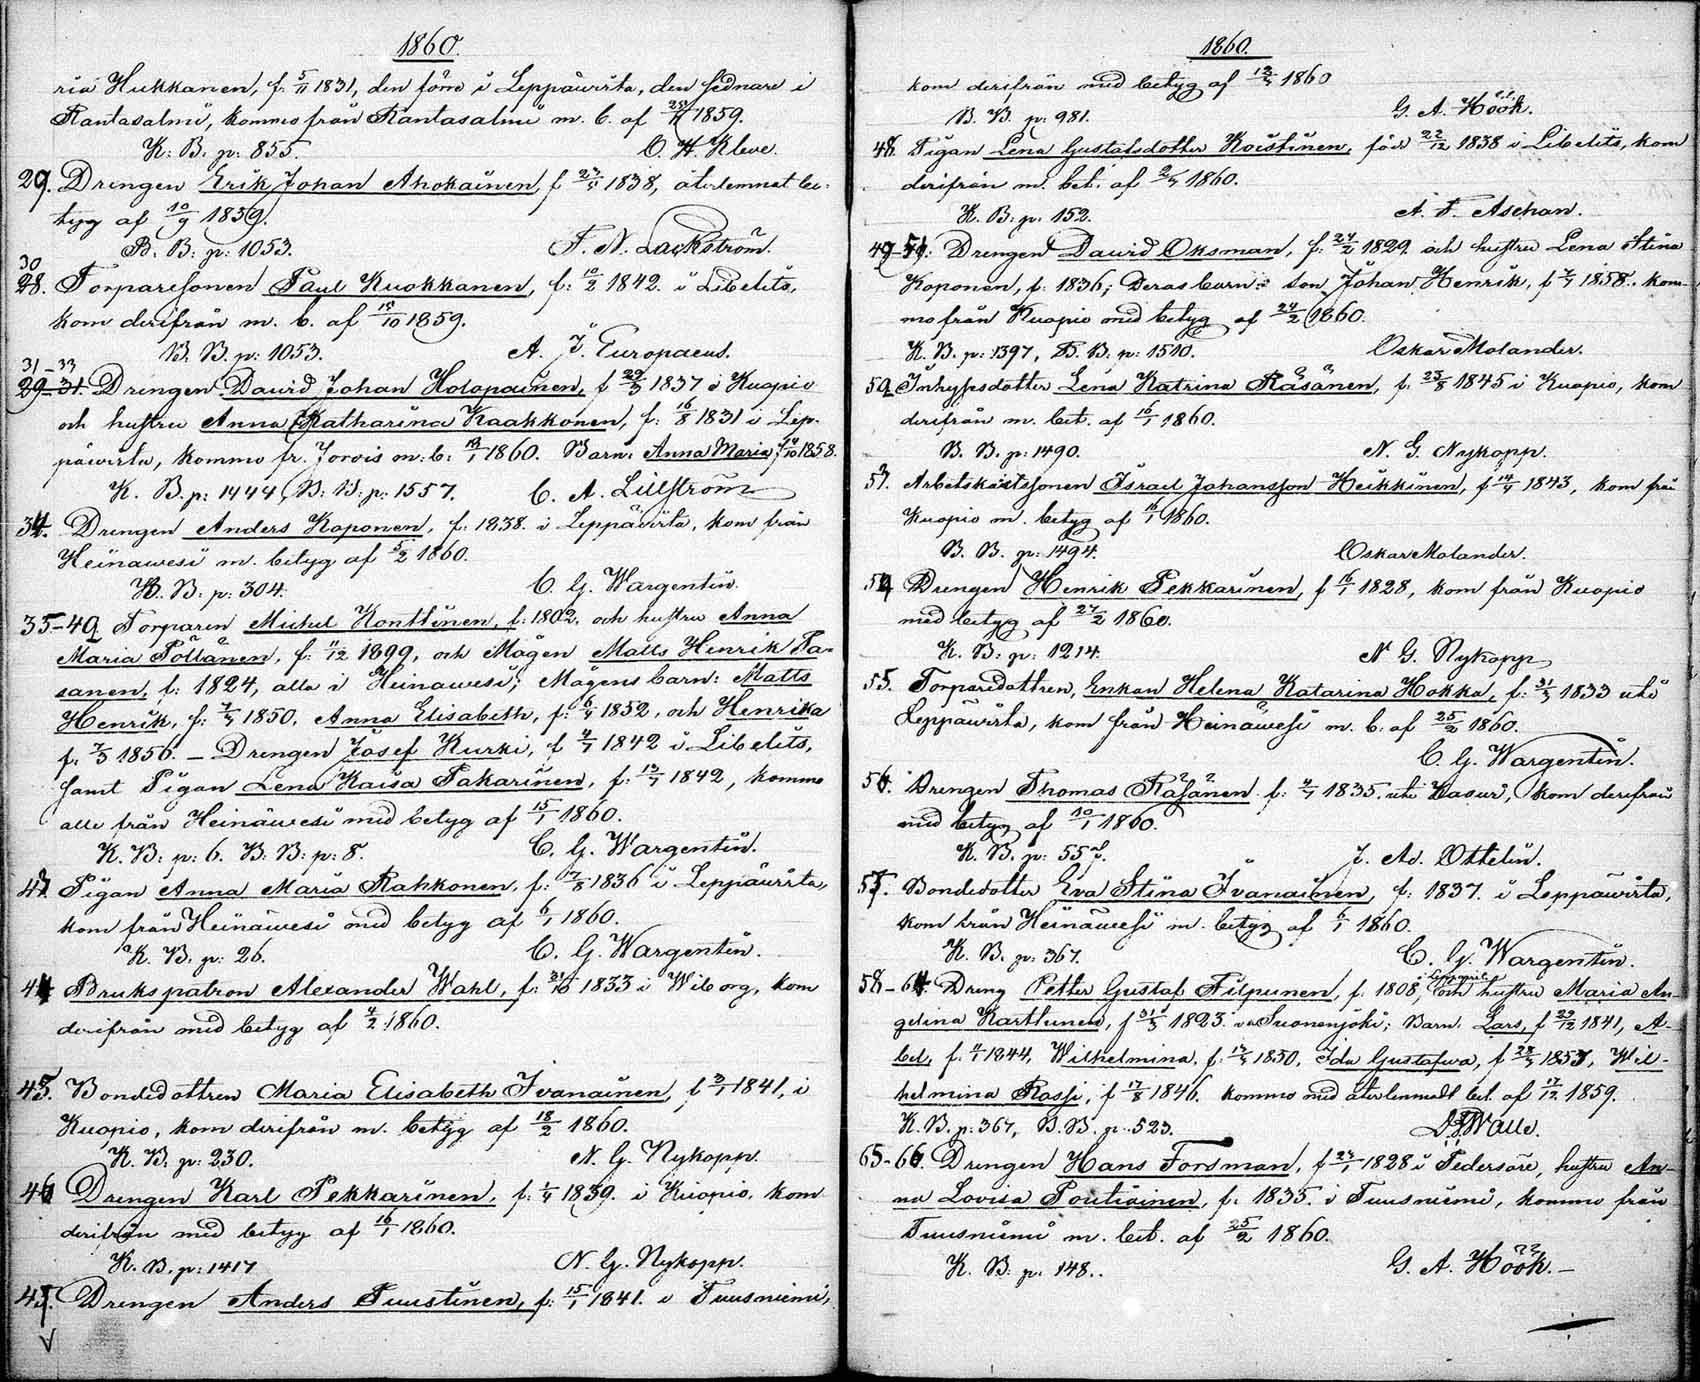 1860.
ria Hukkanen, f. 5/11 1831, den förre i Leppävirta, den sednare i
Rantasalmi, kommo från Rantasalmi m. b. af 1859.
K. B. p: 855. C. H. Kleve.
29. Drengen Erik Johan Ahokainen, f 1838, återlemnat be-
tyg af 10/9 1859.
B. B: p: 1053. F. N. Lackström.
30
28. Torparesonen Paul Kuokkanen, f: 10/2 1842. i Libelits,
kom derifrån m. b. af 15/10 1859.
B. B. p: 1053. A. J. Europaeus.
31-33
29-31. Drengen David Johan Holopainen, f 23/3 1837 i Kuopio
och hustru Anna Katharina Kaakkonen, f: 16/8 1831 i Lep-
pävirta, kommo fr. Jorois m: b: 13/1 1860. Barn: Anna Maria f 14/10 1858.
K. B. p: 1444, B: B: p: 1557. C. A. Lillström
34. Drengen Anders Koponen, f: 1838. i Leppävirta, kom från
Heinävesi m. betyg af 5/2 1860.
K. B: p: 304. C. G. Wargentin.
35-42 Torparen Michel Konttinen, f: 1802, och hustru Anna
Maria Pöllänen, f: 1799, och Mågen Matts Henrik Pa-
sanen, f: 1824, alla i Heinävesi; Mågens barn: Matts
Henrik, f: 1850, Anna Elisabeth, f: 1852, och Henrika
f. 7/3 1856. — Drengen Josef Kurki, f 4/7 1842 i Libelits,
samt Pigan Lena Kaisa Pakarinen, f: 13/7 1842, kommo
alla från Heinävesi med betyg af 15/1 1860.
K. B: p: 6. B: B: p: 8. C. G. Wargentin.
43. Pigan Anna Maria Rahkonen, f: 7/8 1836 i Leppävirta,
kom från Heinävesi med betyg af 6/1 1860.
K. B. p: 26. C. G. Wargentin.
44 Brukspatron Alexander Wahl, f: 31/10 1833 i Wiborg, kom
derifrån med betyg af 4/2 1860.
45. Bondedottren Maria Elisabeth Ivanainen, f 3/1 1841, i
Kuopio, kom derifrån m. betyg af 18/2 1860.
K. B: p: 230. N. G. Nykopp.
46 Drengen Karl Pekkarinen, f: 1/4 1839. i Kuopio, kom
derifrån med betyg af 16/1 1860.
K. B. p: 1417 N. G. Nykopp.
47. Drengen Anders Tuustinen, f: 15/1 1841. i Tuusniemi,
1860.
kom derifrån med betyg af 1860
B. B. p: 981. G. A. Höök.
48. Pigan Lena Gustafsdotter Koistinen, född 22/12 1838 i Libelits, kom
derifrån m. bet. af 1860.
K. B: p: 152. A. F. Aschan.
49-51: Drengen David Oksman, f: 24/2 1829 och hustru Lena Stina
Koponen, f: 1836; Deras barn: son Johan Henrik, f 1858. kom-
mo från Kuopio med betyg af 24/2 1860.
K. B. p: 1397, B. B: p: 1510. Oskar Molander.
52 Inhysesdotter Lena Katrina Räsänen, f: 25/8 1845 i Kuopio, kom
derifrån m. bet. af 16/1 1860.
B. B. p: 1490. N. G. Nykopp.
53. Arbetskarlssonen Israel Johansson Heikkinen, f 1843, kom från
Kuopio m. betyg af 16/1 1860.
B. B. p: 1494. Oskar Molander.
54 Drengen Henrik Pekkarinen, f 16/1 1828, kom från Kuopio
med betyg af 27/2 1860.
K. B: p: 1214. N G. Nykopp
55. Torparedottren, Enkan Helena Katarina Hokka, f: 31/3 1833 uti
Leppävirta, kom från Heinävesi m. b. af 25/2 1860.
C. G. Wargentin.
56. Drengen Thomas Räsänen f: 4/7 1835. uti, kom derifrån
med betyg af 10/1 1860.
K. B. p: 55 J. Ad. Ottelin.
57. Bondedotter Eva Stina Ivanainen, f: 1837. i Leppävirta,
kom från Heinävesi m. betyg af 6/1 1860.
K. B. p: 367. C. G. Wargentin.
58-64. Dreng Petter Gustaf Filpunen, f. 1808, och hustru Maria An-
gelina Karttunen, f 31/3 1823. Suonenjoki; Barn: Lars, f 23/12 1841, A-
bel, f. 1844, Wilhelmina, f: 1850, Ida Gustafva, f 1853, Wil-
helmina Rossi, f 17/8 1846. kommo med återlemnadt bet. af 17/12 1859.
K. B. p: 367, B. B. p. 523. Walle.
65-66. Drengen Hans Forsman, f 23/1 1828 i Pedersöre, hustru An-
na Lovisa Poutiainen, f: 1835. i Tuusniemi, kommo från
Tuusniemi m. bet. af 25/2 1860.
K. B: p. 148.. G. A. Höök.—